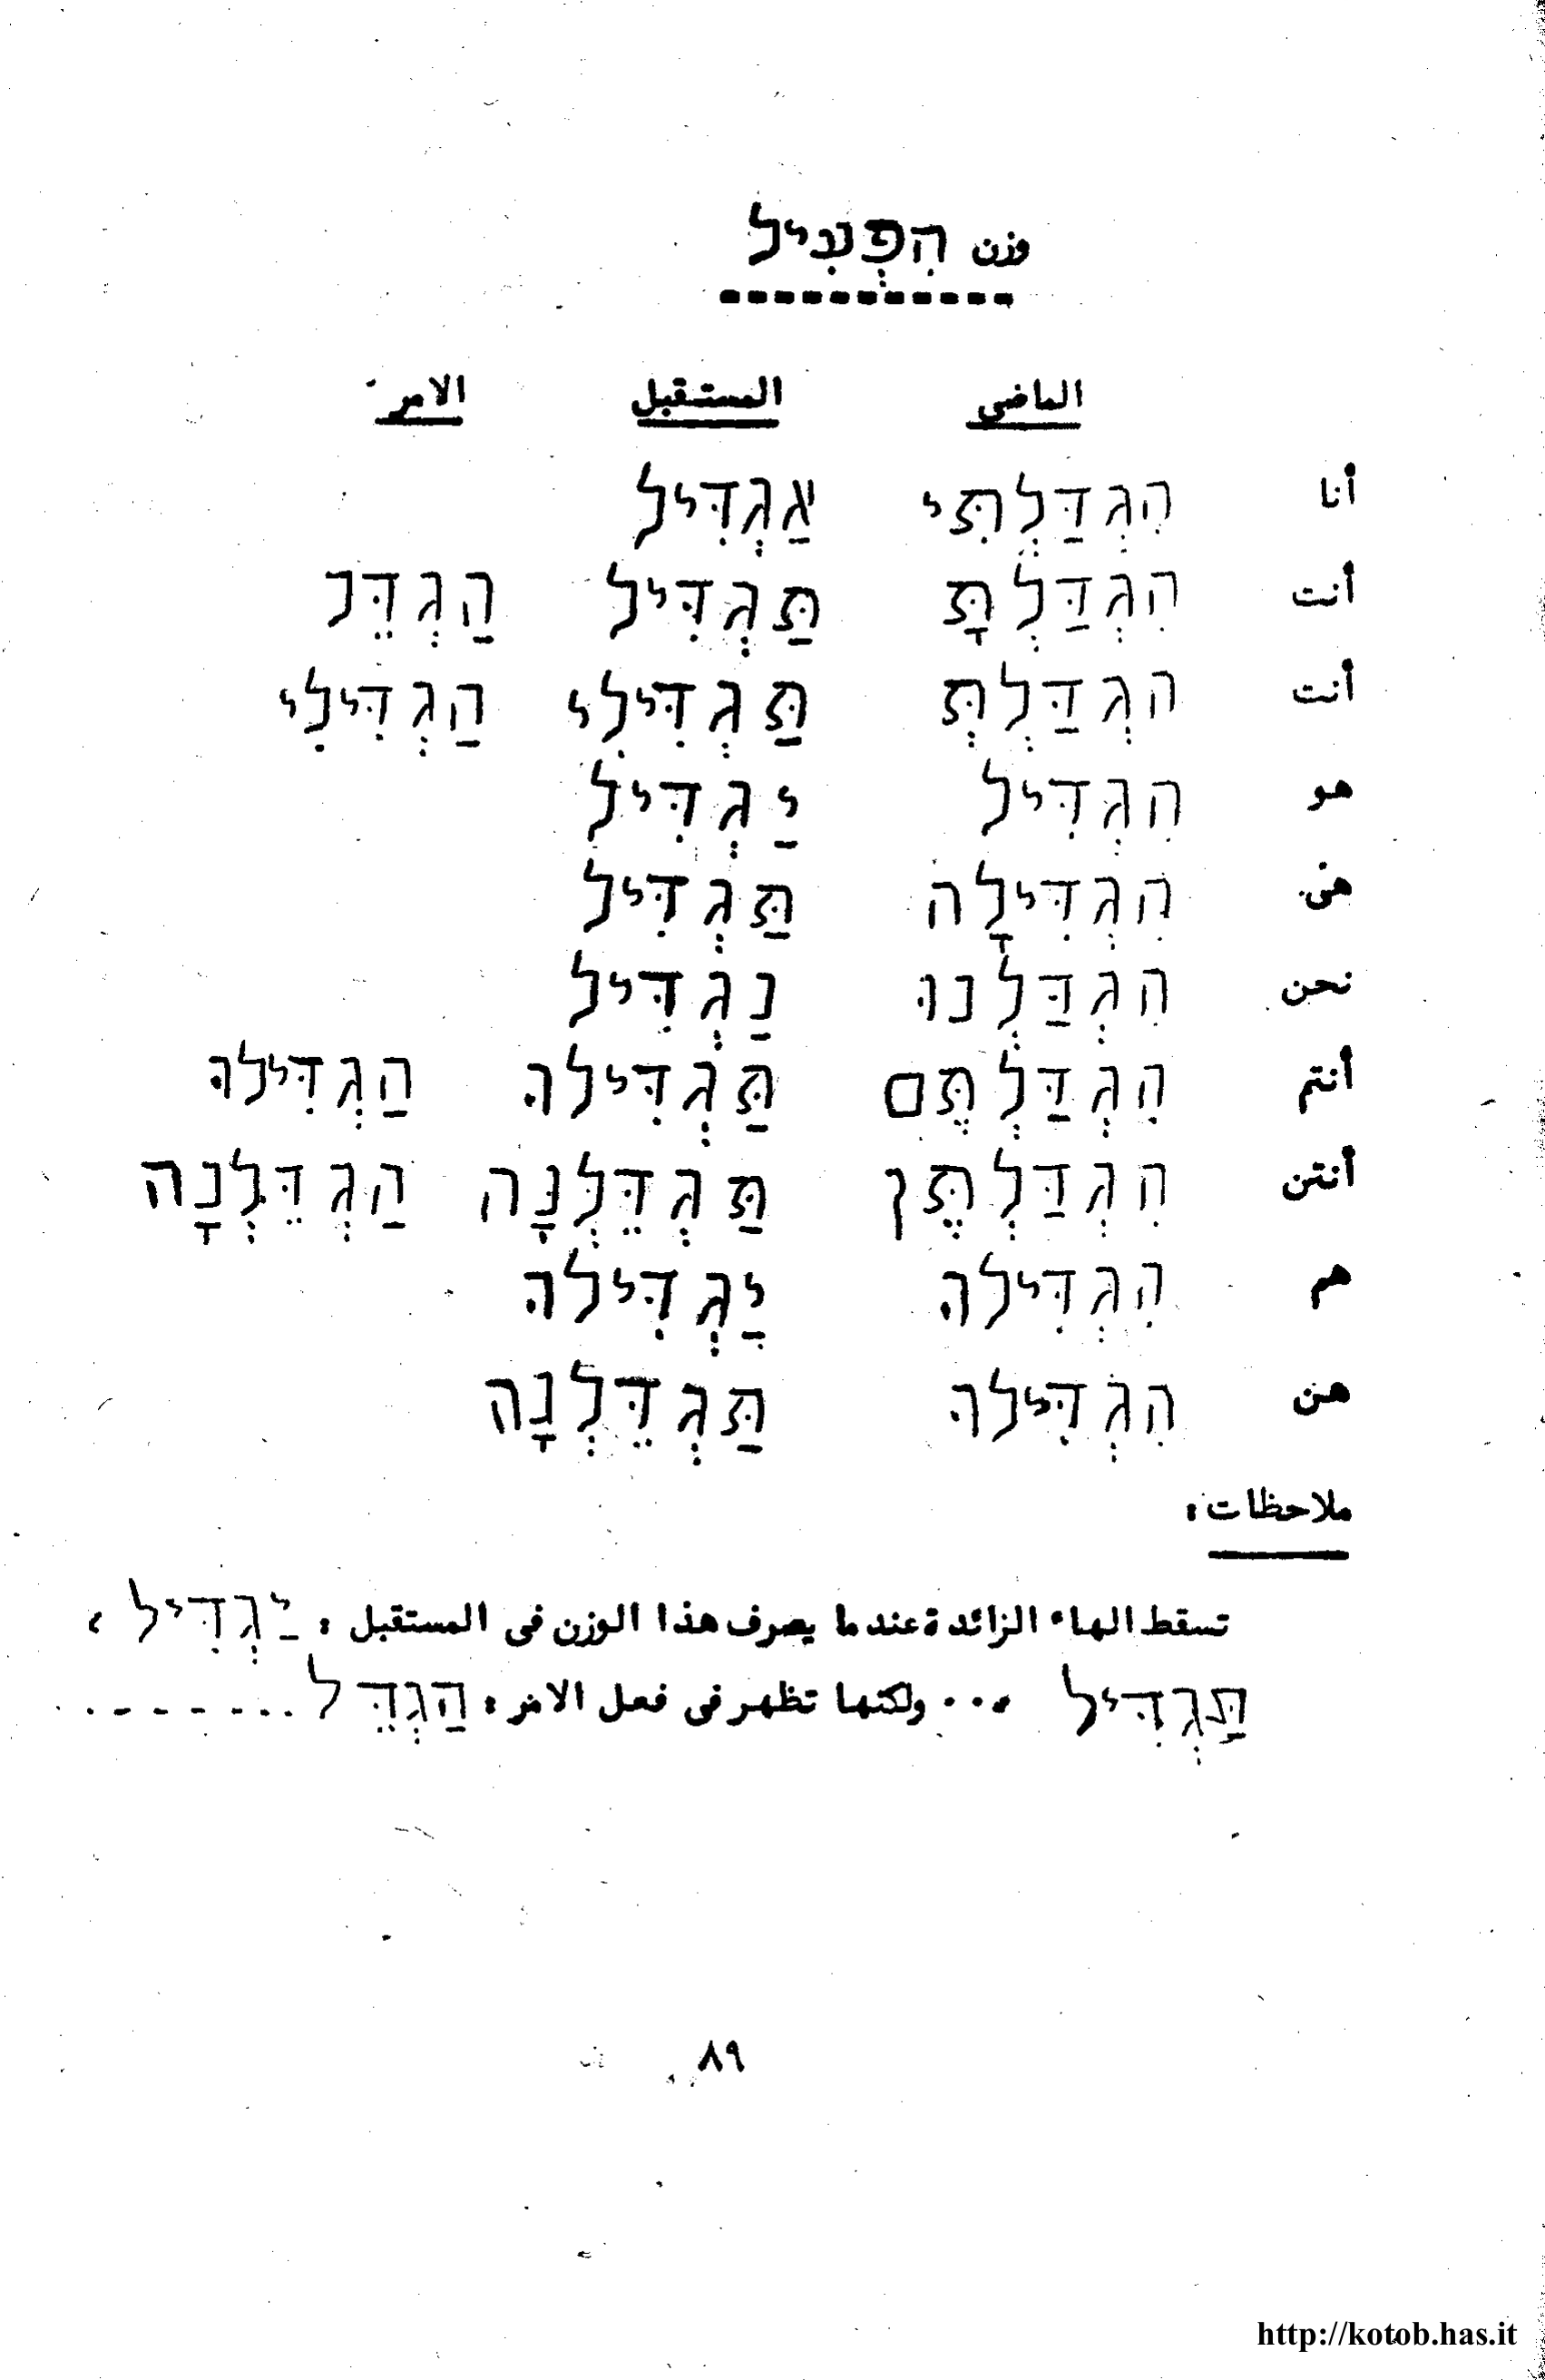 وزن הִפְעִיל
الماضي المستقبل الامر
أنا הִגְדַּלְתִּי אַגְדִּיל
أنت הִגְדַּלְתָּ תַּגְדִּיל הַגְדֵּל
أنت הִגְדַּלְתְּ תַּגְדִּילִי הַגְדִּילִי
هو הִגְדִּיל יַגְדִּיל
هي הִגְדִּילָה תַּגְדִּיל
نحن הִגְדַּלְנוּ נַגְדִּיל
أنتم הִגְדַּלְתֶּם תַּגְדִּילוּ הַגְדִּילוּ
أنتن הִגְדַּלְתֶּן תַּגְדֵּלְנָה הַגְדֵּלְנָה
هم הִגְדִּילוּ יַגְדִּילוּ
هن הִגְדִּילוּ תַּגְדֵּלְנָה
ملاحظات :
تسقط الهاء الزائدة عندما يصرف هذا الوزن في المستقبل : יַגְדִּיל ،
תַּגְדִּיל ... ولكنها تظهر في فعل الامر : הַגְדֵּל ........
٨٩
http://kotob.has.it